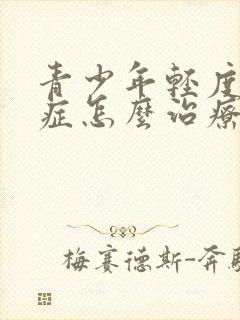 青少年輕度
症怎麼治療
梅賽德斯-奔馳